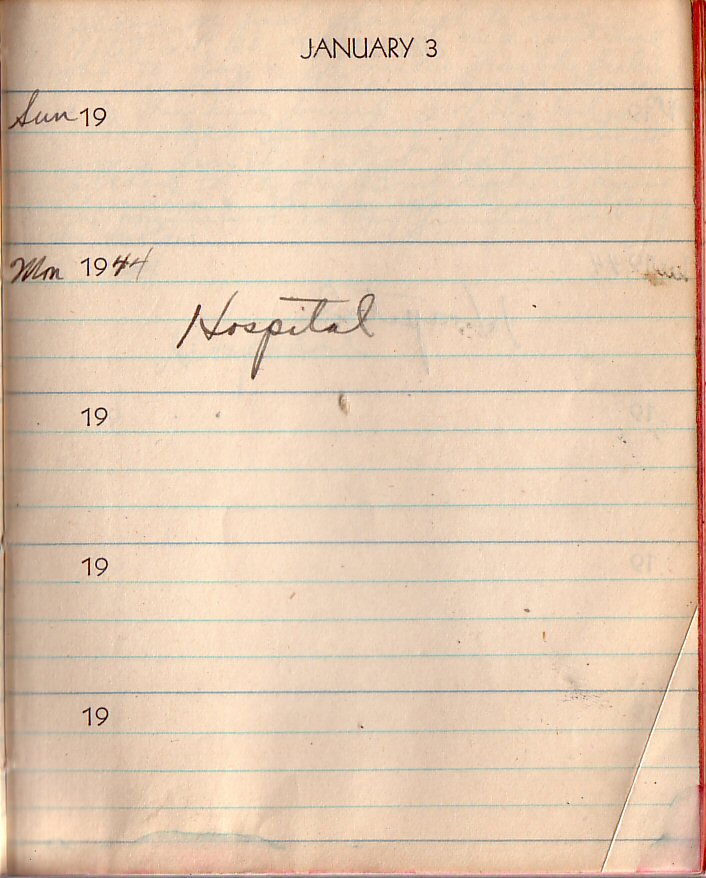 JANUARY 3
Sun 19
Mon 1944
Hospital
19
19
19